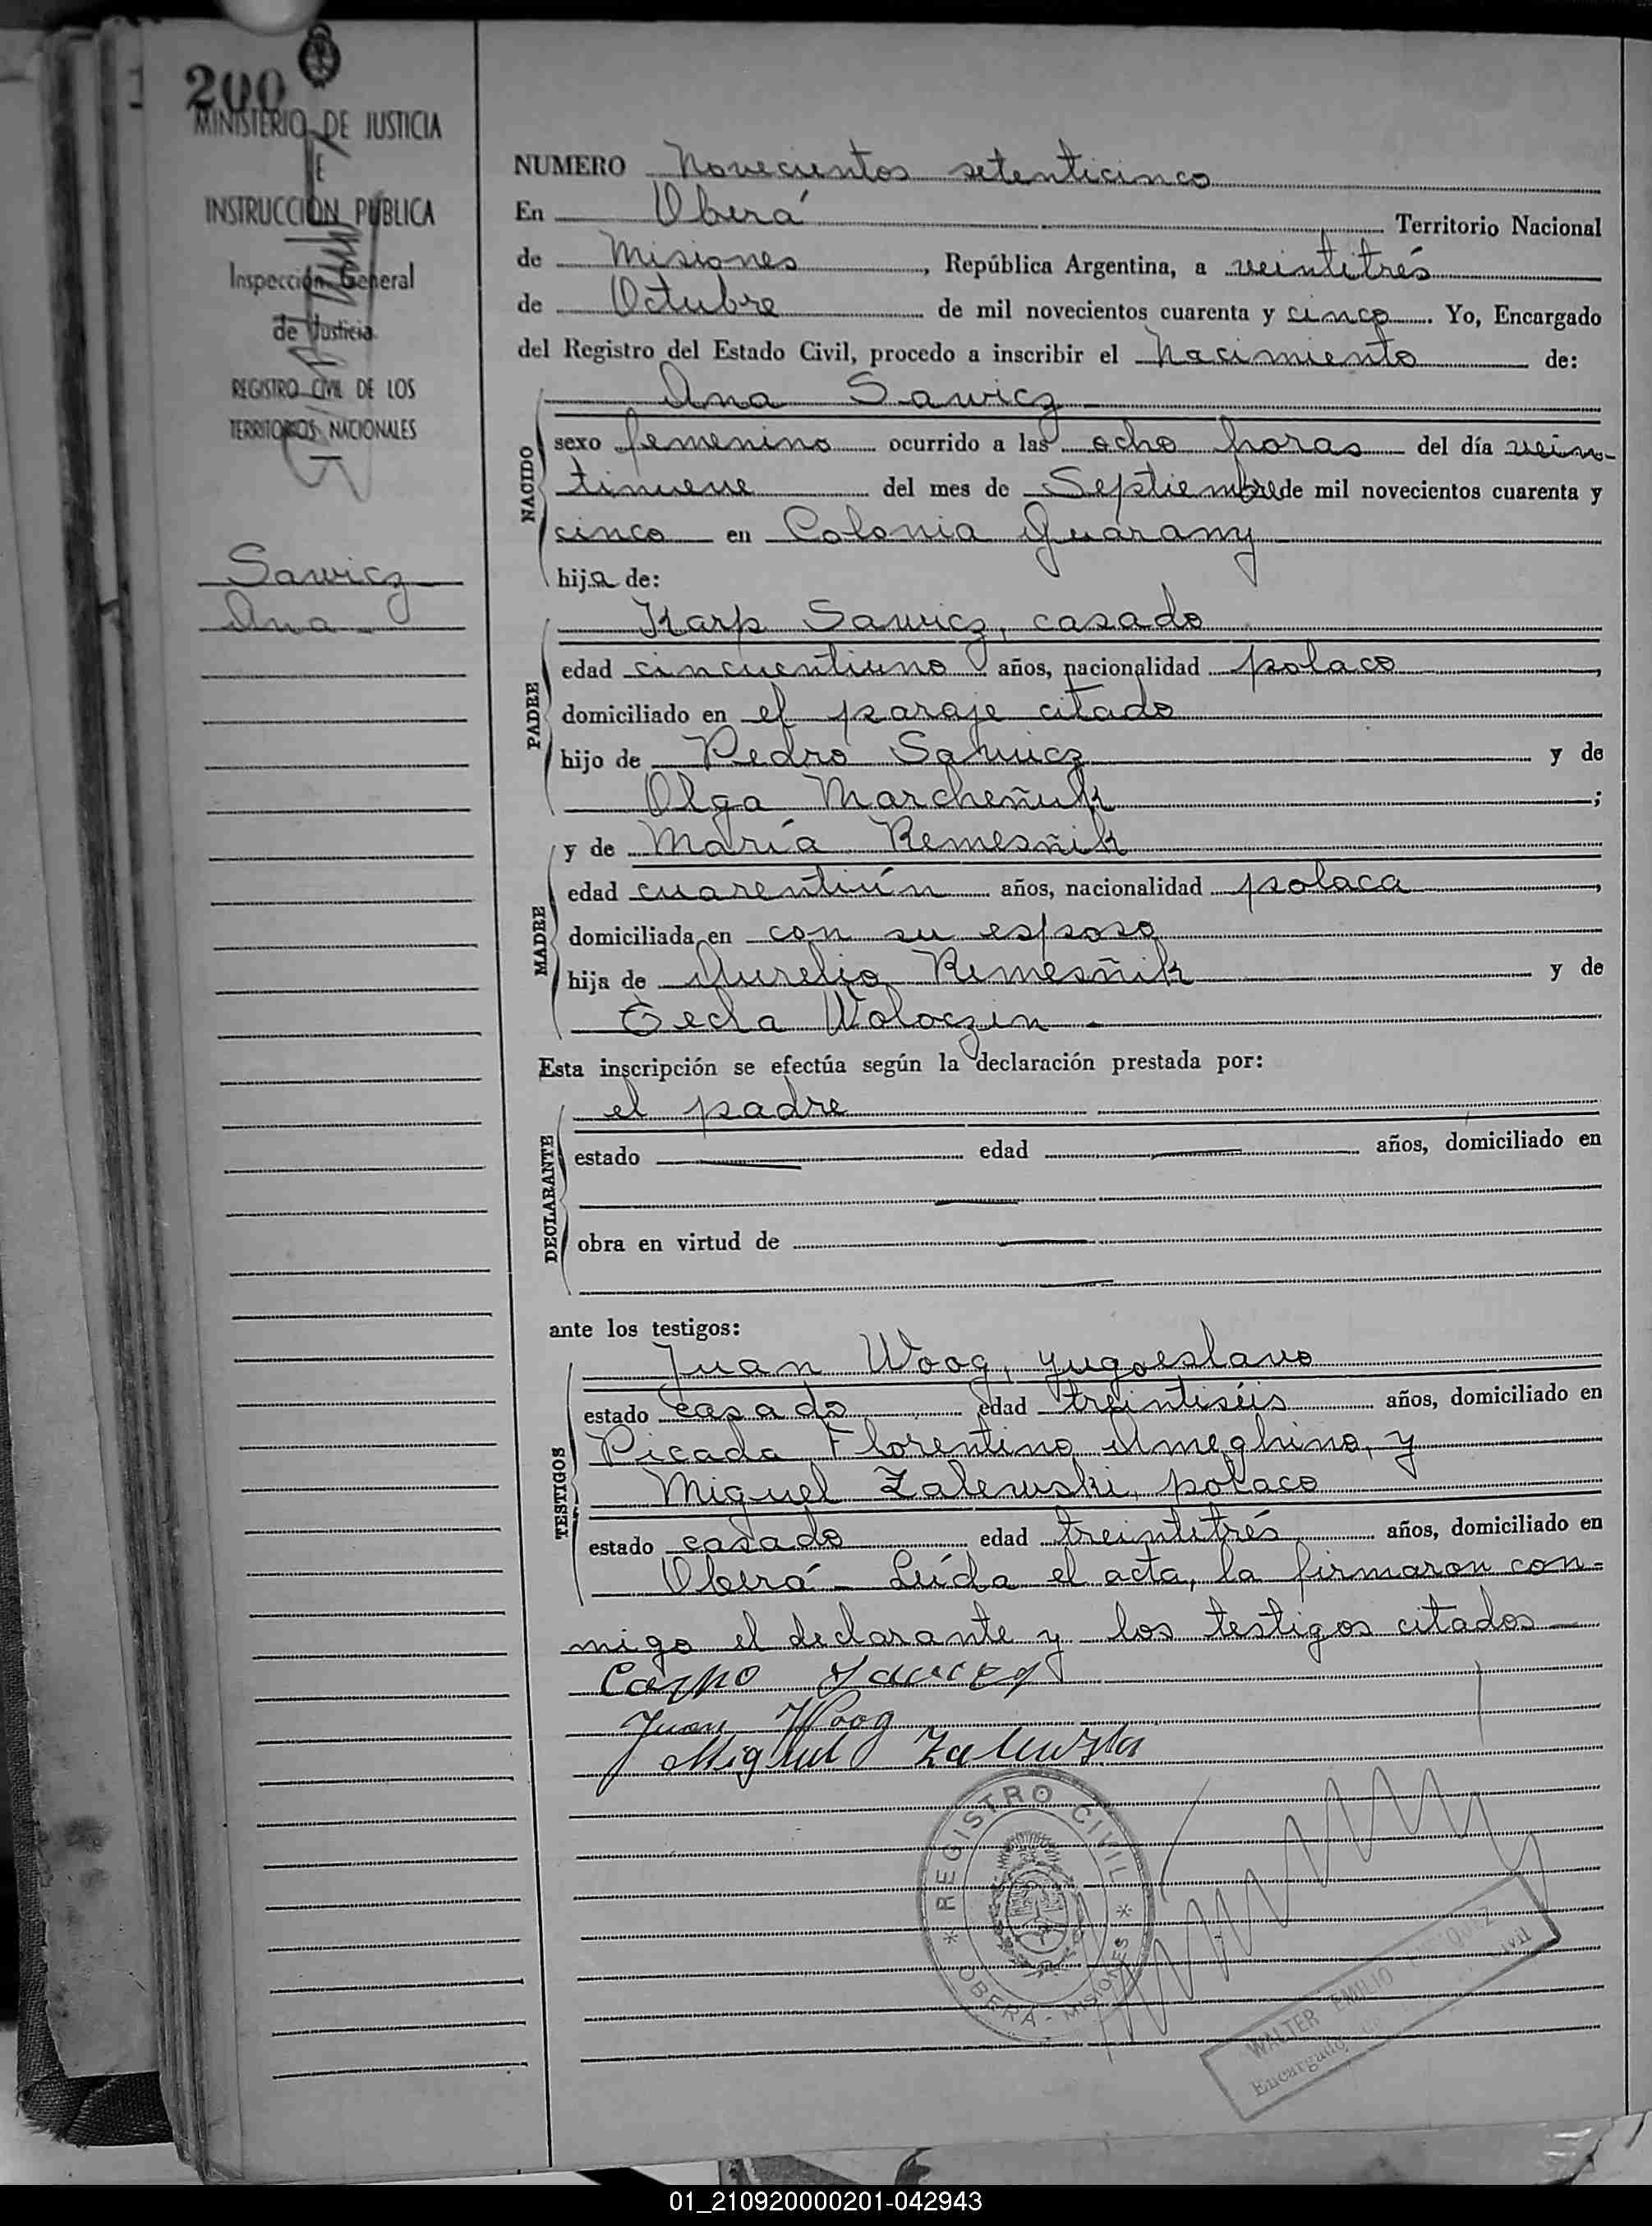 200
MINISTERIO DE JUSTICIA
E
INSTRUCCIÓN PÚBLICA
Inspección General
de Justicia
REGISTRO CIVIL DE LOS
TERRITORIOS NACIONALES
Sawicz
Ana
NUMERO Novecientos setenticinco
En Oberá Territorio Nacional
de Misiones, República Argentina, a veintitrés
de Octubre de mil novecientos cuarenta y cinco. Yo, Encargado
del Registro del Estado Civil, procedo a inscribir el nacimiento de:
Ana Sawicz
NACIDO
sexo femenino ocurrido a las ocho horas del día vein-
tinueve del mes de Septiembre de mil novecientos cuarenta y
cinco en Colonia Guarany
hija de:
PADRE
Karp Sawicz, casado
edad cincuentiuno años, nacionalidad polaco,
domiciliado en el paraje citado
hijo de Pedro Sawicz y de
Olga Marcheñuk;
MADRE
y de María Remesñik
edad cuarentiún años, nacionalidad polaca,
domiciliada en con su esposo
hija de Aurelio Remesñik y de
Tecla Woloczin
Esta inscripción se efectúa según la declaración prestada por:
DECLARANTE
el padre
estado — edad — años, domiciliado en
obra en virtud de —
ante los testigos:
TESTIGOS
Juan Woog, yugoeslavo
estado casado edad treintiséis años, domiciliado en
Picada Florentino Ameghino, y
Miguel Zalewski, polaco
estado casado edad treintitrés años, domiciliado en
Oberá - Leída el acta, la firmaron con=
migo el declarante y los testigos citados
Juan Woog
Miguel Zalewski
REGISTRO CIVIL
OBERÁ - MISIONES
WALTER EMILIO
Encargado Civil
01_210920000201-042943